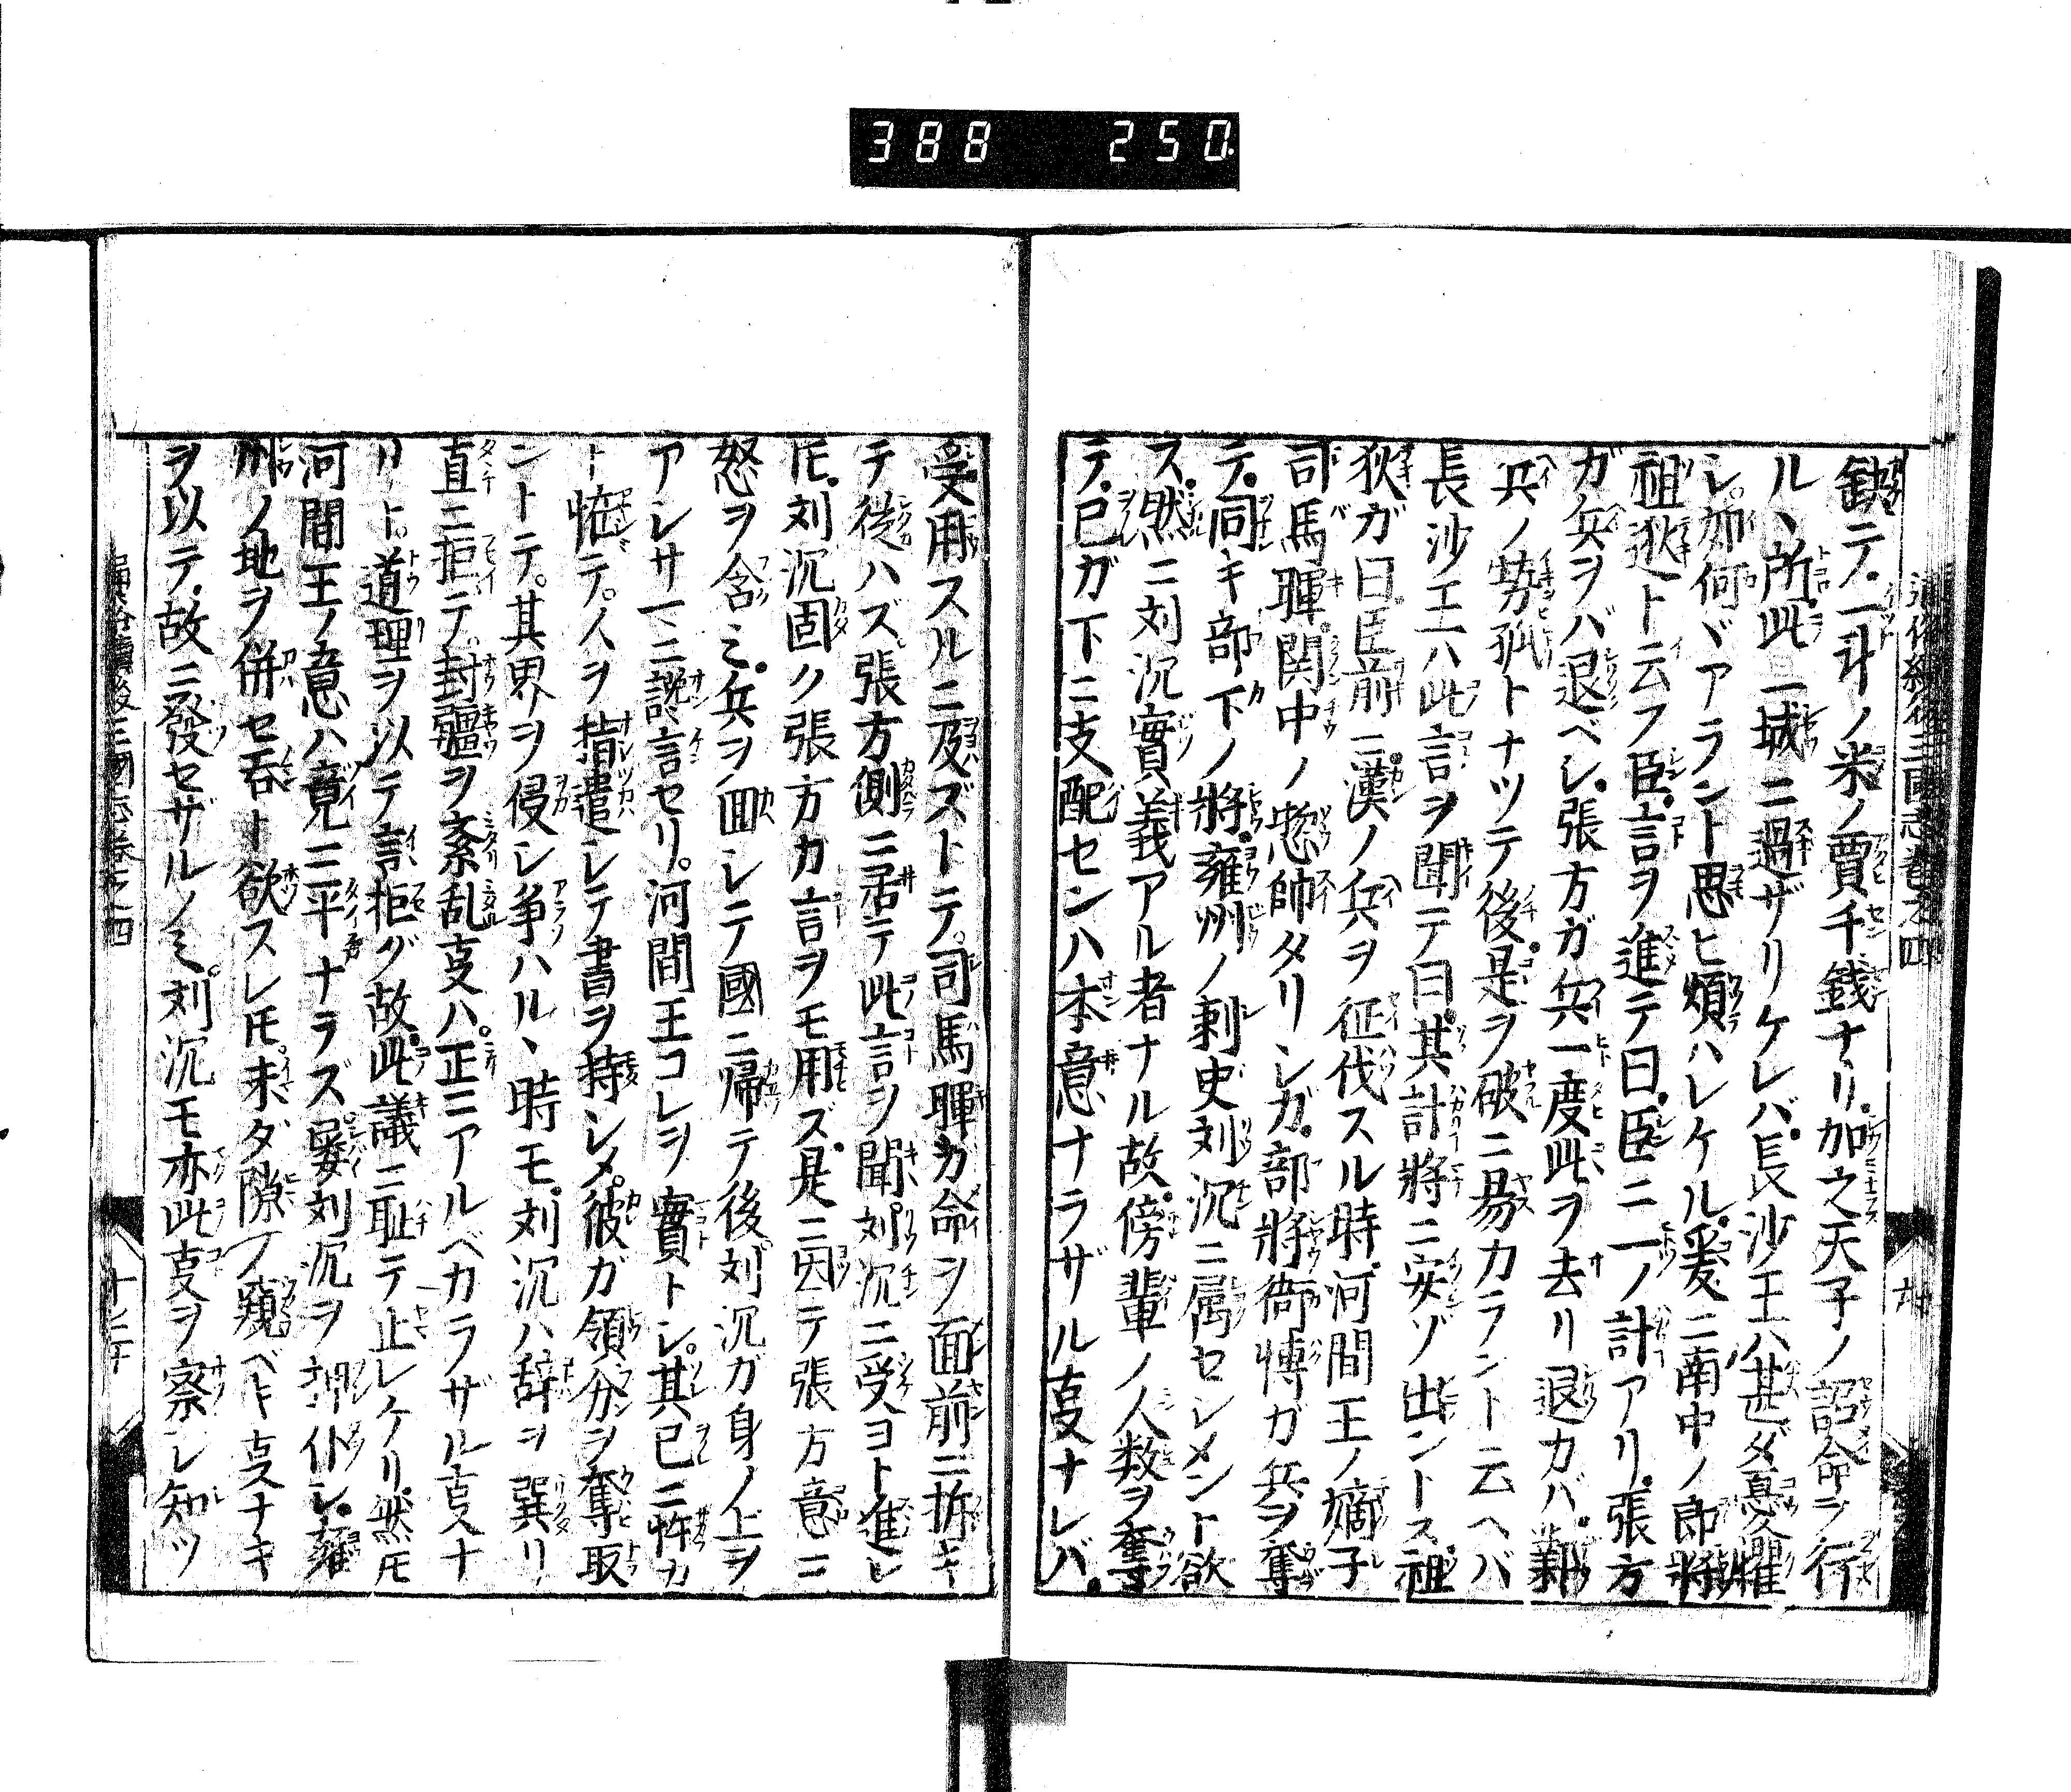 388 250
鈌テ一斗ノ米ノ賈千錢ナリ加之天子ノ詔命ヲ行
ルヽ所此一城ニ過ザリケレバ長沙王ハ甚ダ憂懼
シ如何ヾアラント思ヒ煩ハレケル爰ニ南中ノ郎將
祖狄ト云フ臣言ヲ進テ曰臣ニ一ノ計アリ張方
ガ兵ヲバ退ベシ張方ガ兵一度此ヲ去リ退カバ
兵ノ勢孤トナツテ後是ヲ破ニ易カラント云ヘバ
長沙王ハ此言ヲ聞テ曰其計將ニ安ゾ出ントス祖
狄ガ曰臣前ニ漢ノ兵ヲ征伐スル時河間王ノ嫡子
司馬暉関中ノ惣帥タリシガ部將衙愽ガ兵ヲ奪
テ同キ部下ノ將雍州ノ剌史刘沉ニ属セシメント欲
ス然ニ刘沉實義アル者ナル故傍輩ノ人数ヲ奪
テ已ガ下ニ支配センハ本意ナラザル㕝ナレバ
受用スルニ及ズトテ司馬暉カ命ヲ面前ニ拆キ
テ從ハズ張方側ニ居テ此言ヲ聞刘沉ニ受ヨト進レ
𪜈刘沉固ク張方カ言ヲモ用ズ是ニ因テ張方意ニ
怒ヲ含ミ兵ヲ回シテ國ニ帰テ後刘沉ガ身ノ上ヲ
アシサマニ説言セリ河間王コレヲ實トシ其已ニ忤カ
ト恠テ人ヲ指遣シテ書ヲ持シメ彼ガ領分ヲ奪取
ントテ其界ヲ侵シ争ハルヽ時モ刘沉ハ辞ヲ巽リ
直ニ拒テ封疆ヲ紊乱㕝ハ正ニアルベカラザル㕝ナ
リト道理ヲ以テ言拒グ故此議ニ耻テ止レケリ然𪜈
河間王ノ意ハ竟ニ平ナラズ屡刘沉ヲ抑仆シ雍
州ノ地ヲ併セ呑ト欲スレ𪜈未ダ隙ノ窺ベキ㕝ナキ
ヲ以テ故ニ發セザルノミ刘沉モ亦此㕝ヲ察シ知ツ